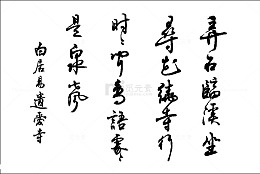 弄石臨溪坐
尋花繞寺行
時時聞鳥語
處處是泉聲
白居易遺愛寺